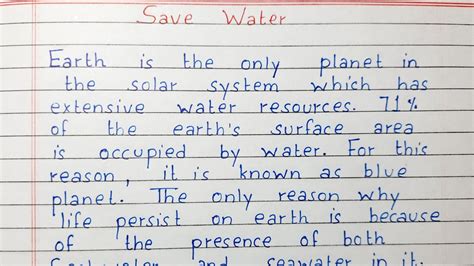 Save Water
Earth is the only planet in
the solar system which has
extensive water resources. 71%
of the earth's surface area
is occupied by water. For this
reason, it is known as blue
planet. The only reason why
life persist on earth is because
of the presence of both
and seawater in it.